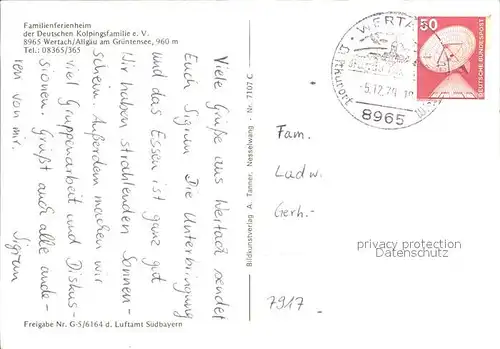 Familienferienheim
der Deutschen Kolpingsfamilie e. V.
8965 Wertach/Allgäu am Grüntensee, 960 m
Tel.: 08365/365
Viele Grüße aus Wertach sendet
Euch Sigrun. Die Unterbringung
und das Essen ist ganz gut
Wir haben strahlenden Sonnen-
schein. Außerdem machen wir
viel Gruppenarbeit und Diskus-
sionen. Grüßt auch alle ande-
ren von mir.
Sigrun
Freigabe Nr. G-5/6164 d. Luftamt Südbayern
Bildkunstverlag A. Tanner, Nesselwang · Nr. 7102 C
WERTACH
Luftkurort
-5.12.79
8965
50
DEUTSCHE BUNDESPOST
Fam.
Ludw.
Gerh.-
privacy protection
Datenschutz
7917